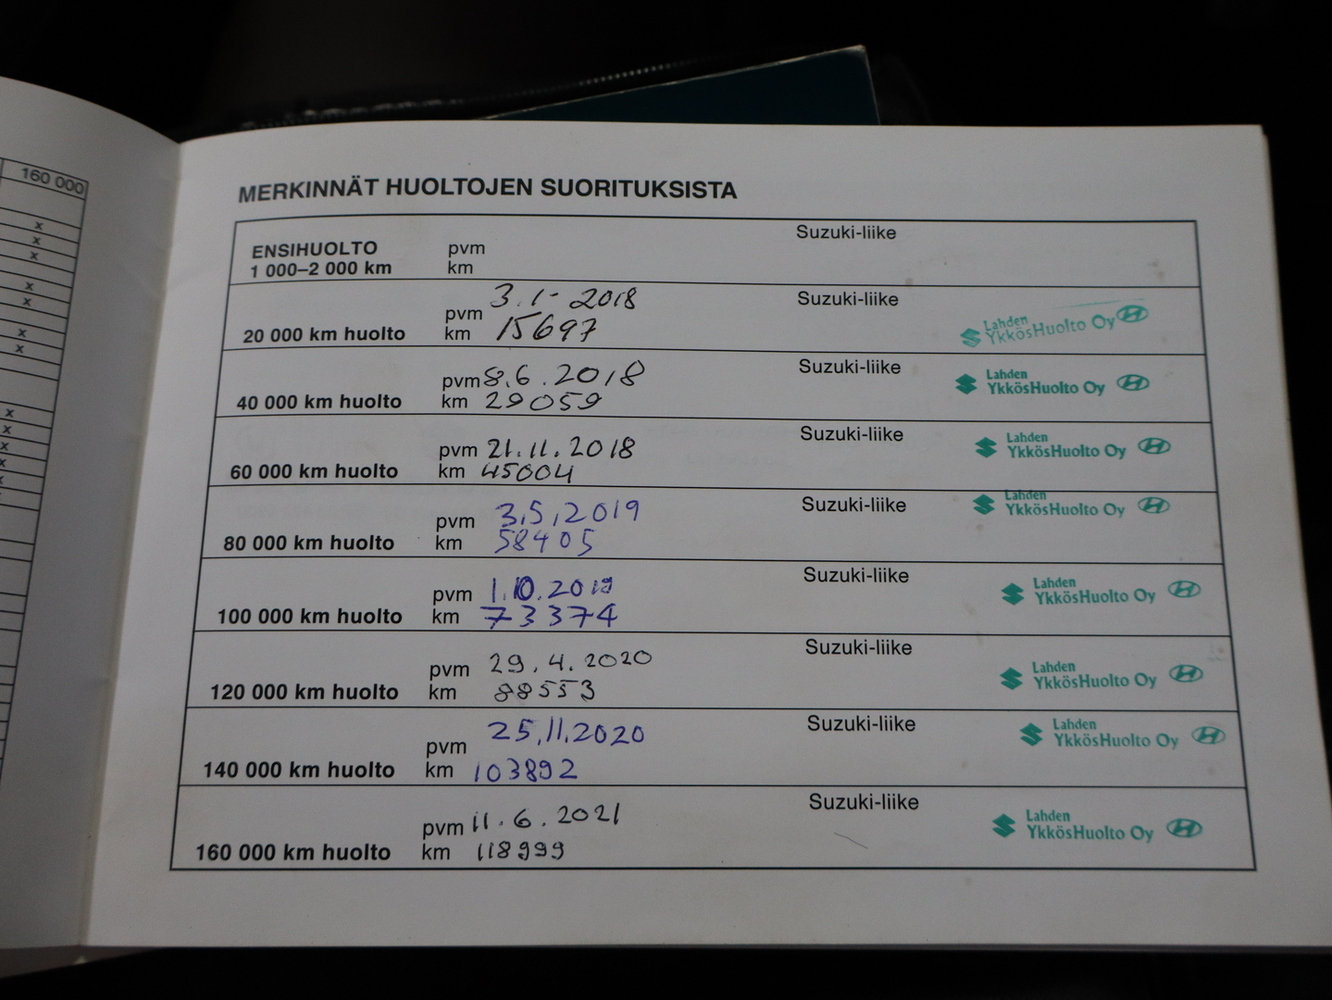 160 000
x
x
x
x
x
x
x
x
x
x
x
x
MERKINNÄT HUOLTOJEN SUORITUKSISTA
ENSIHUOLTO pvm Suzuki-liike
1 000–2 000 km km
pvm 3.1-2018 Suzuki-liike
20 000 km huolto km 15697
Lahden
YkkösHuolto Oy
pvm 8.6.2018 Suzuki-liike
40 000 km huolto km 29059
Lahden
YkkösHuolto Oy
pvm 21.11.2018 Suzuki-liike
60 000 km huolto km 45004
Lahden
YkkösHuolto Oy
pvm 3.5.2019 Suzuki-liike
80 000 km huolto km 58405
Lahden
YkkösHuolto Oy
pvm 1.10.2019 Suzuki-liike
100 000 km huolto km 73374
Lahden
YkkösHuolto Oy
pvm 29.4.2020 Suzuki-liike
120 000 km huolto km 88553
Lahden
YkkösHuolto Oy
pvm 25.11.2020 Suzuki-liike
140 000 km huolto km 103892
Lahden
YkkösHuolto Oy
pvm 11.6.2021 Suzuki-liike
160 000 km huolto km 118999
Lahden
YkkösHuolto Oy